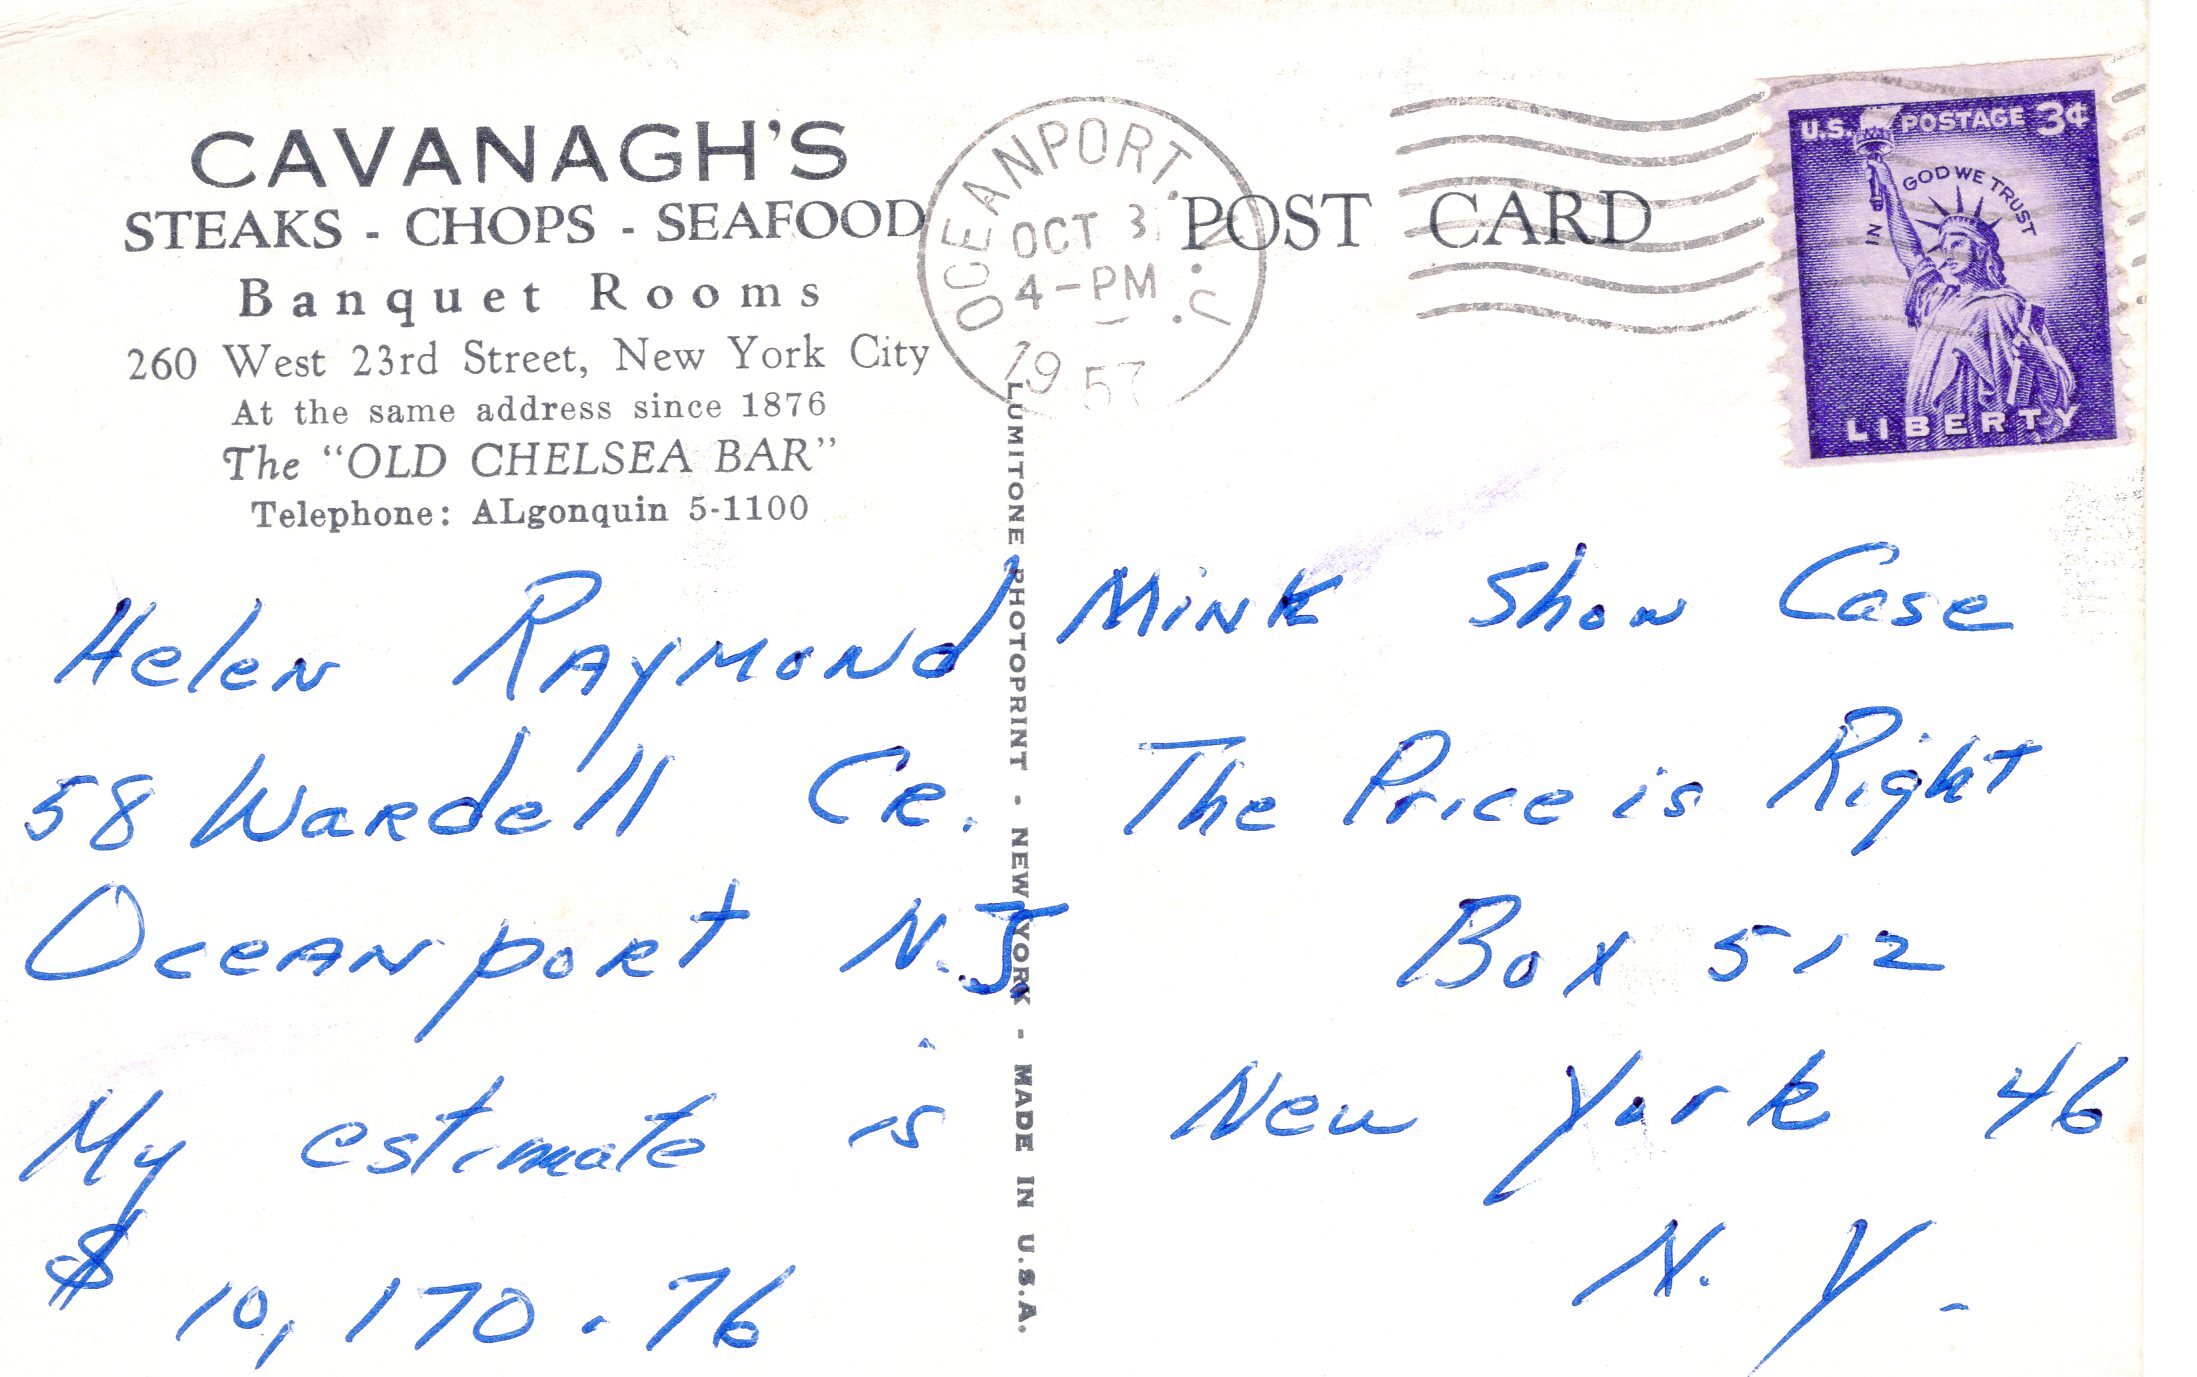 CAVANAGH'S
STEAKS - CHOPS - SEAFOOD
Banquet Rooms
260 West 23rd Street, New York City
At the same address since 1876
The "OLD CHELSEA BAR"
Telephone: ALgonquin 5-1100
OCEANPORT, N.J.
OCT 3
4-PM
1957
POST CARD
U.S. POSTAGE 3¢
IN GOD WE TRUST
LIBERTY
LUMITONE PHOTOPRINT - NEW YORK - MADE IN U.S.A.
Helen Raymond
58 Wardell Cr.
Oceanport N.J.
My estimate is
$ 10,170.76
Mink Show Case
The Price is Right
Box 512
New York 46
N. Y.